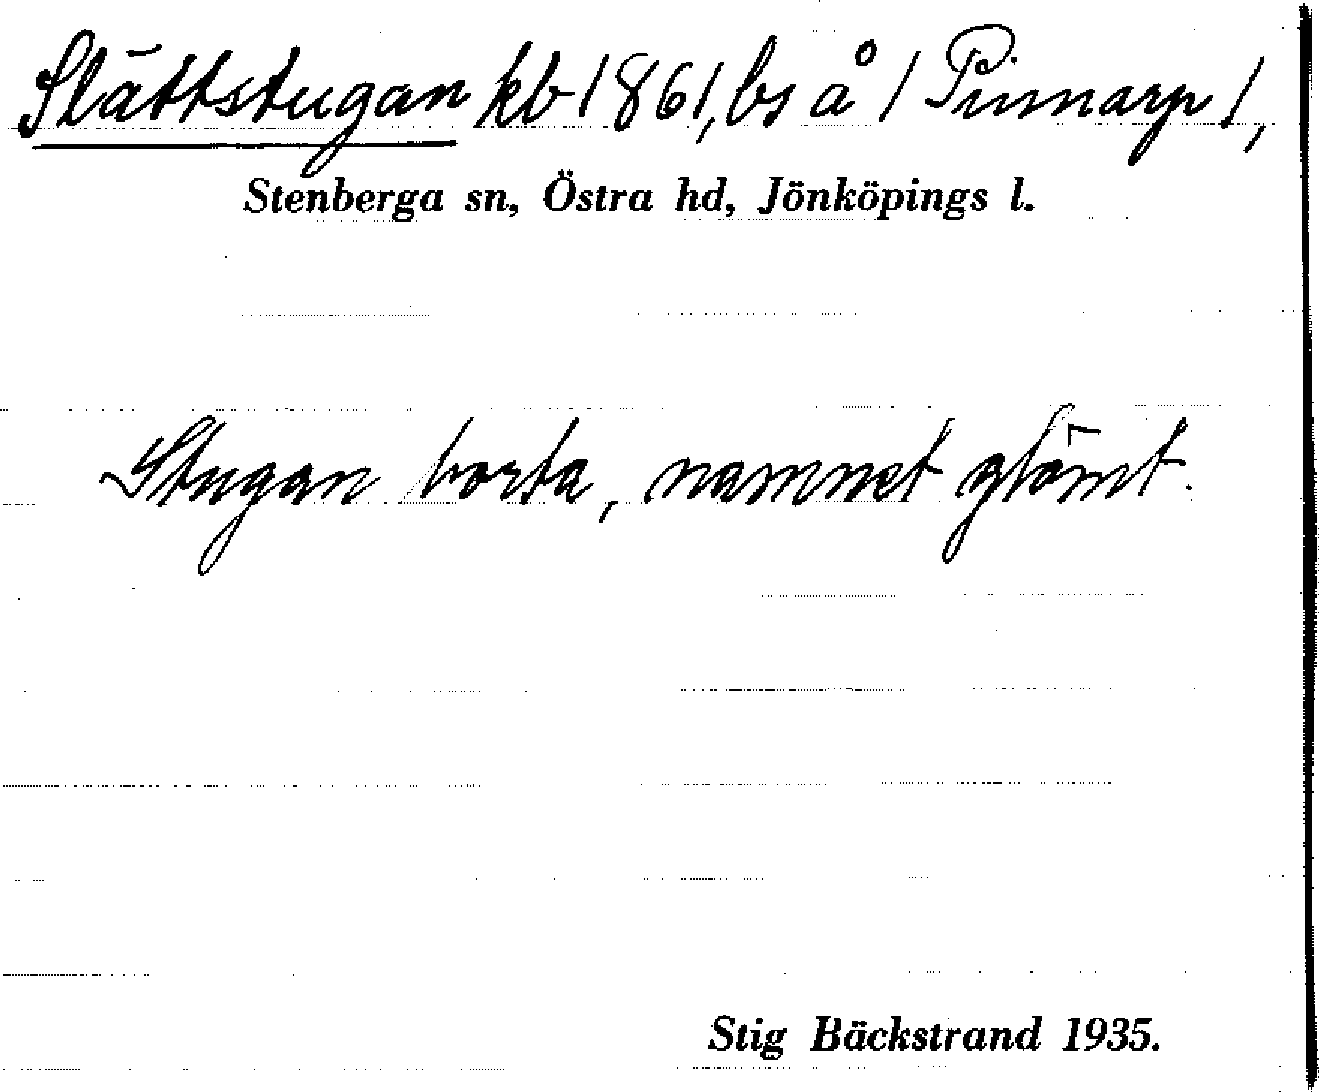 Slättstugan kb 1861, bs å / Pinnarp /,
Stenberga sn, Östra hd, Jönköpings l.
Stugan borta, namnet glömt.
Stig Bäckstrand 1935.